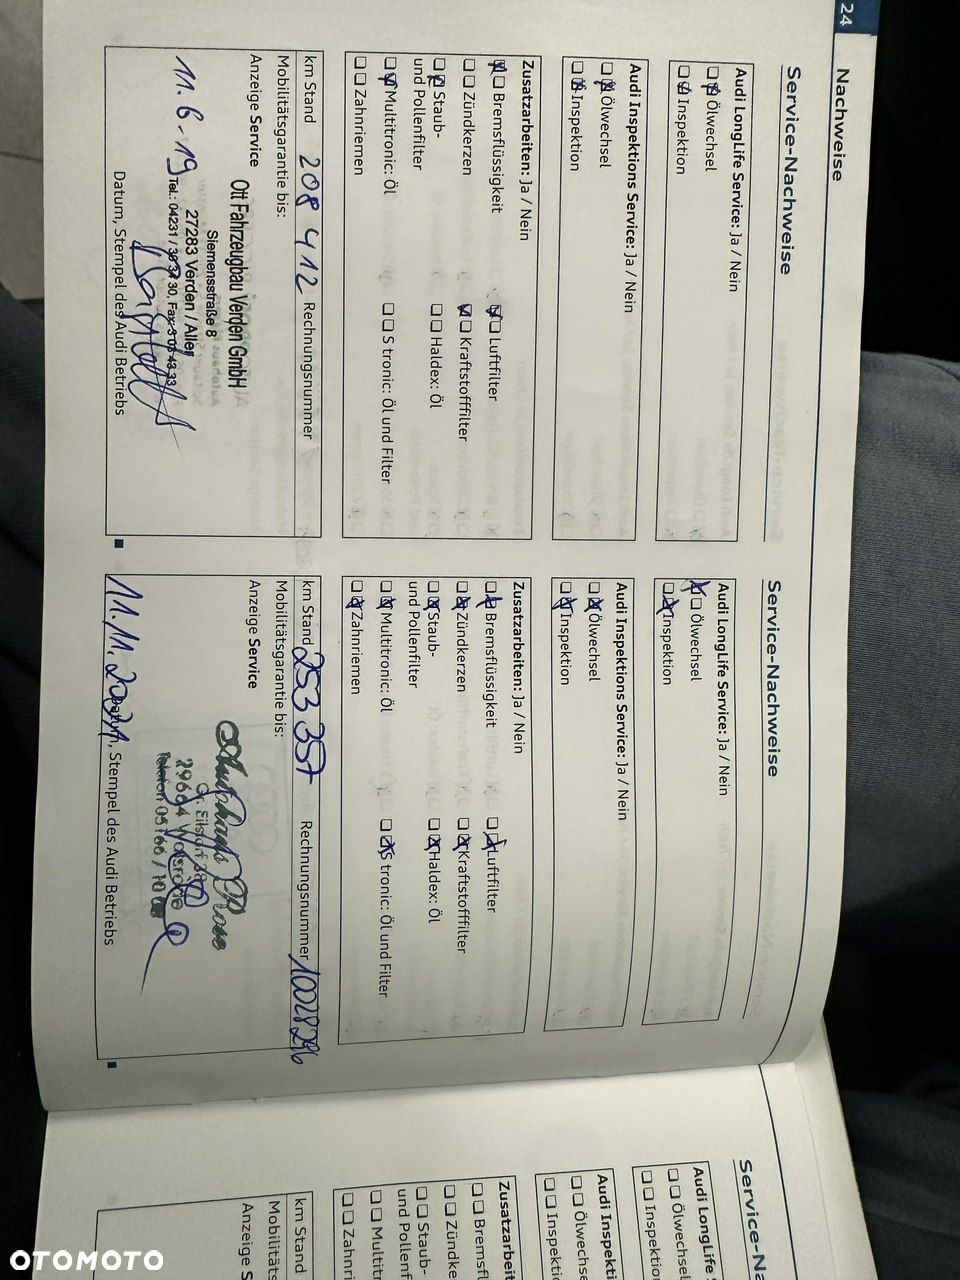 24
Nachweise
Service-Nachweise
Audi LongLife Service: Ja / Nein
Ölwechsel
Inspektion
Audi Inspektions Service: Ja / Nein
Ölwechsel
Inspektion
Zusatzarbeiten: Ja / Nein
Bremsflüssigkeit
Luftfilter
Zündkerzen
Kraftstofffilter
Staub-
und Pollenfilter
Haldex: Öl
Multitronic: Öl
S tronic: Öl und Filter
Zahnriemen
km Stand 208 412 Rechnungsnummer
Mobilitätsgarantie bis:
Anzeige Service
Ott Fahrzeugbau Verden GmbH
Siemensstraße 8
27283 Verden / Aller
11.6-19
Datum, Stempel des Audi Betriebs
Service-Nachweise
Audi LongLife Service: Ja / Nein
Ölwechsel
Inspektion
Audi Inspektions Service: Ja / Nein
Ölwechsel
Inspektion
Zusatzarbeiten: Ja / Nein
Bremsflüssigkeit
Luftfilter
Zündkerzen
Kraftstofffilter
Staub-
und Pollenfilter
Haldex: Öl
Multitronic: Öl
S tronic: Öl und Filter
Zahnriemen
km Stand 253 357 Rechnungsnummer 10028296
Mobilitätsgarantie bis:
Anzeige Service
Autohaus Rose
29664 Walsrode
11.11.2021
, Stempel des Audi Betriebs
Service-Na
Audi LongLife S
Ölwechsel
Inspektion
Audi Inspekti
Ölwechse
Inspektion
Zusatzarbeit
Bremsfl
Zündke
Staub-
und Pollenf
Multitr
Zahnri
km Stand
Mobilitäts
Anzeige S
OTOMOTO